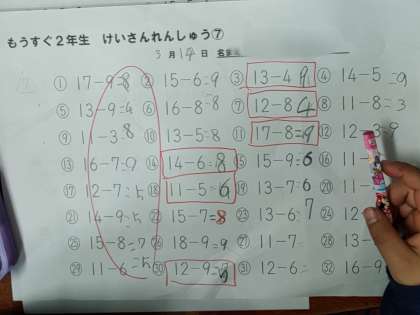 もうすぐ2年生 けいさんれんしゅう⑦
3月14日 名前
① 17-9=8 ② 15-6=9 ③ 13-4 9 ④ 14-5=9
⑤ 13-9=4 ⑥ 16-8=8 ⑦ 12-8 4 ⑧ 11-8=3
⑨ 11-3=8 ⑩ 13-5=8 ⑪ 17-8=9 ⑫ 12-3=9
⑬ 16-7=9 ⑭ 14-6=8 ⑮ 15-9=6 ⑯ 11
⑰ 12-7=5 ⑱ 11-5=6 ⑲ 13-7=6 ⑳ 11
㉑ 14-9=5 ㉒ 15-7=8 ㉓ 13-6=7 ㉔ 12
㉕ 15-8=7 ㉖ 18-9=9 ㉗ 11-7= ㉘ 13
㉙ 11-6=5 ㉚ 12-9= ㉛ 12-6= ㉜ 16-9